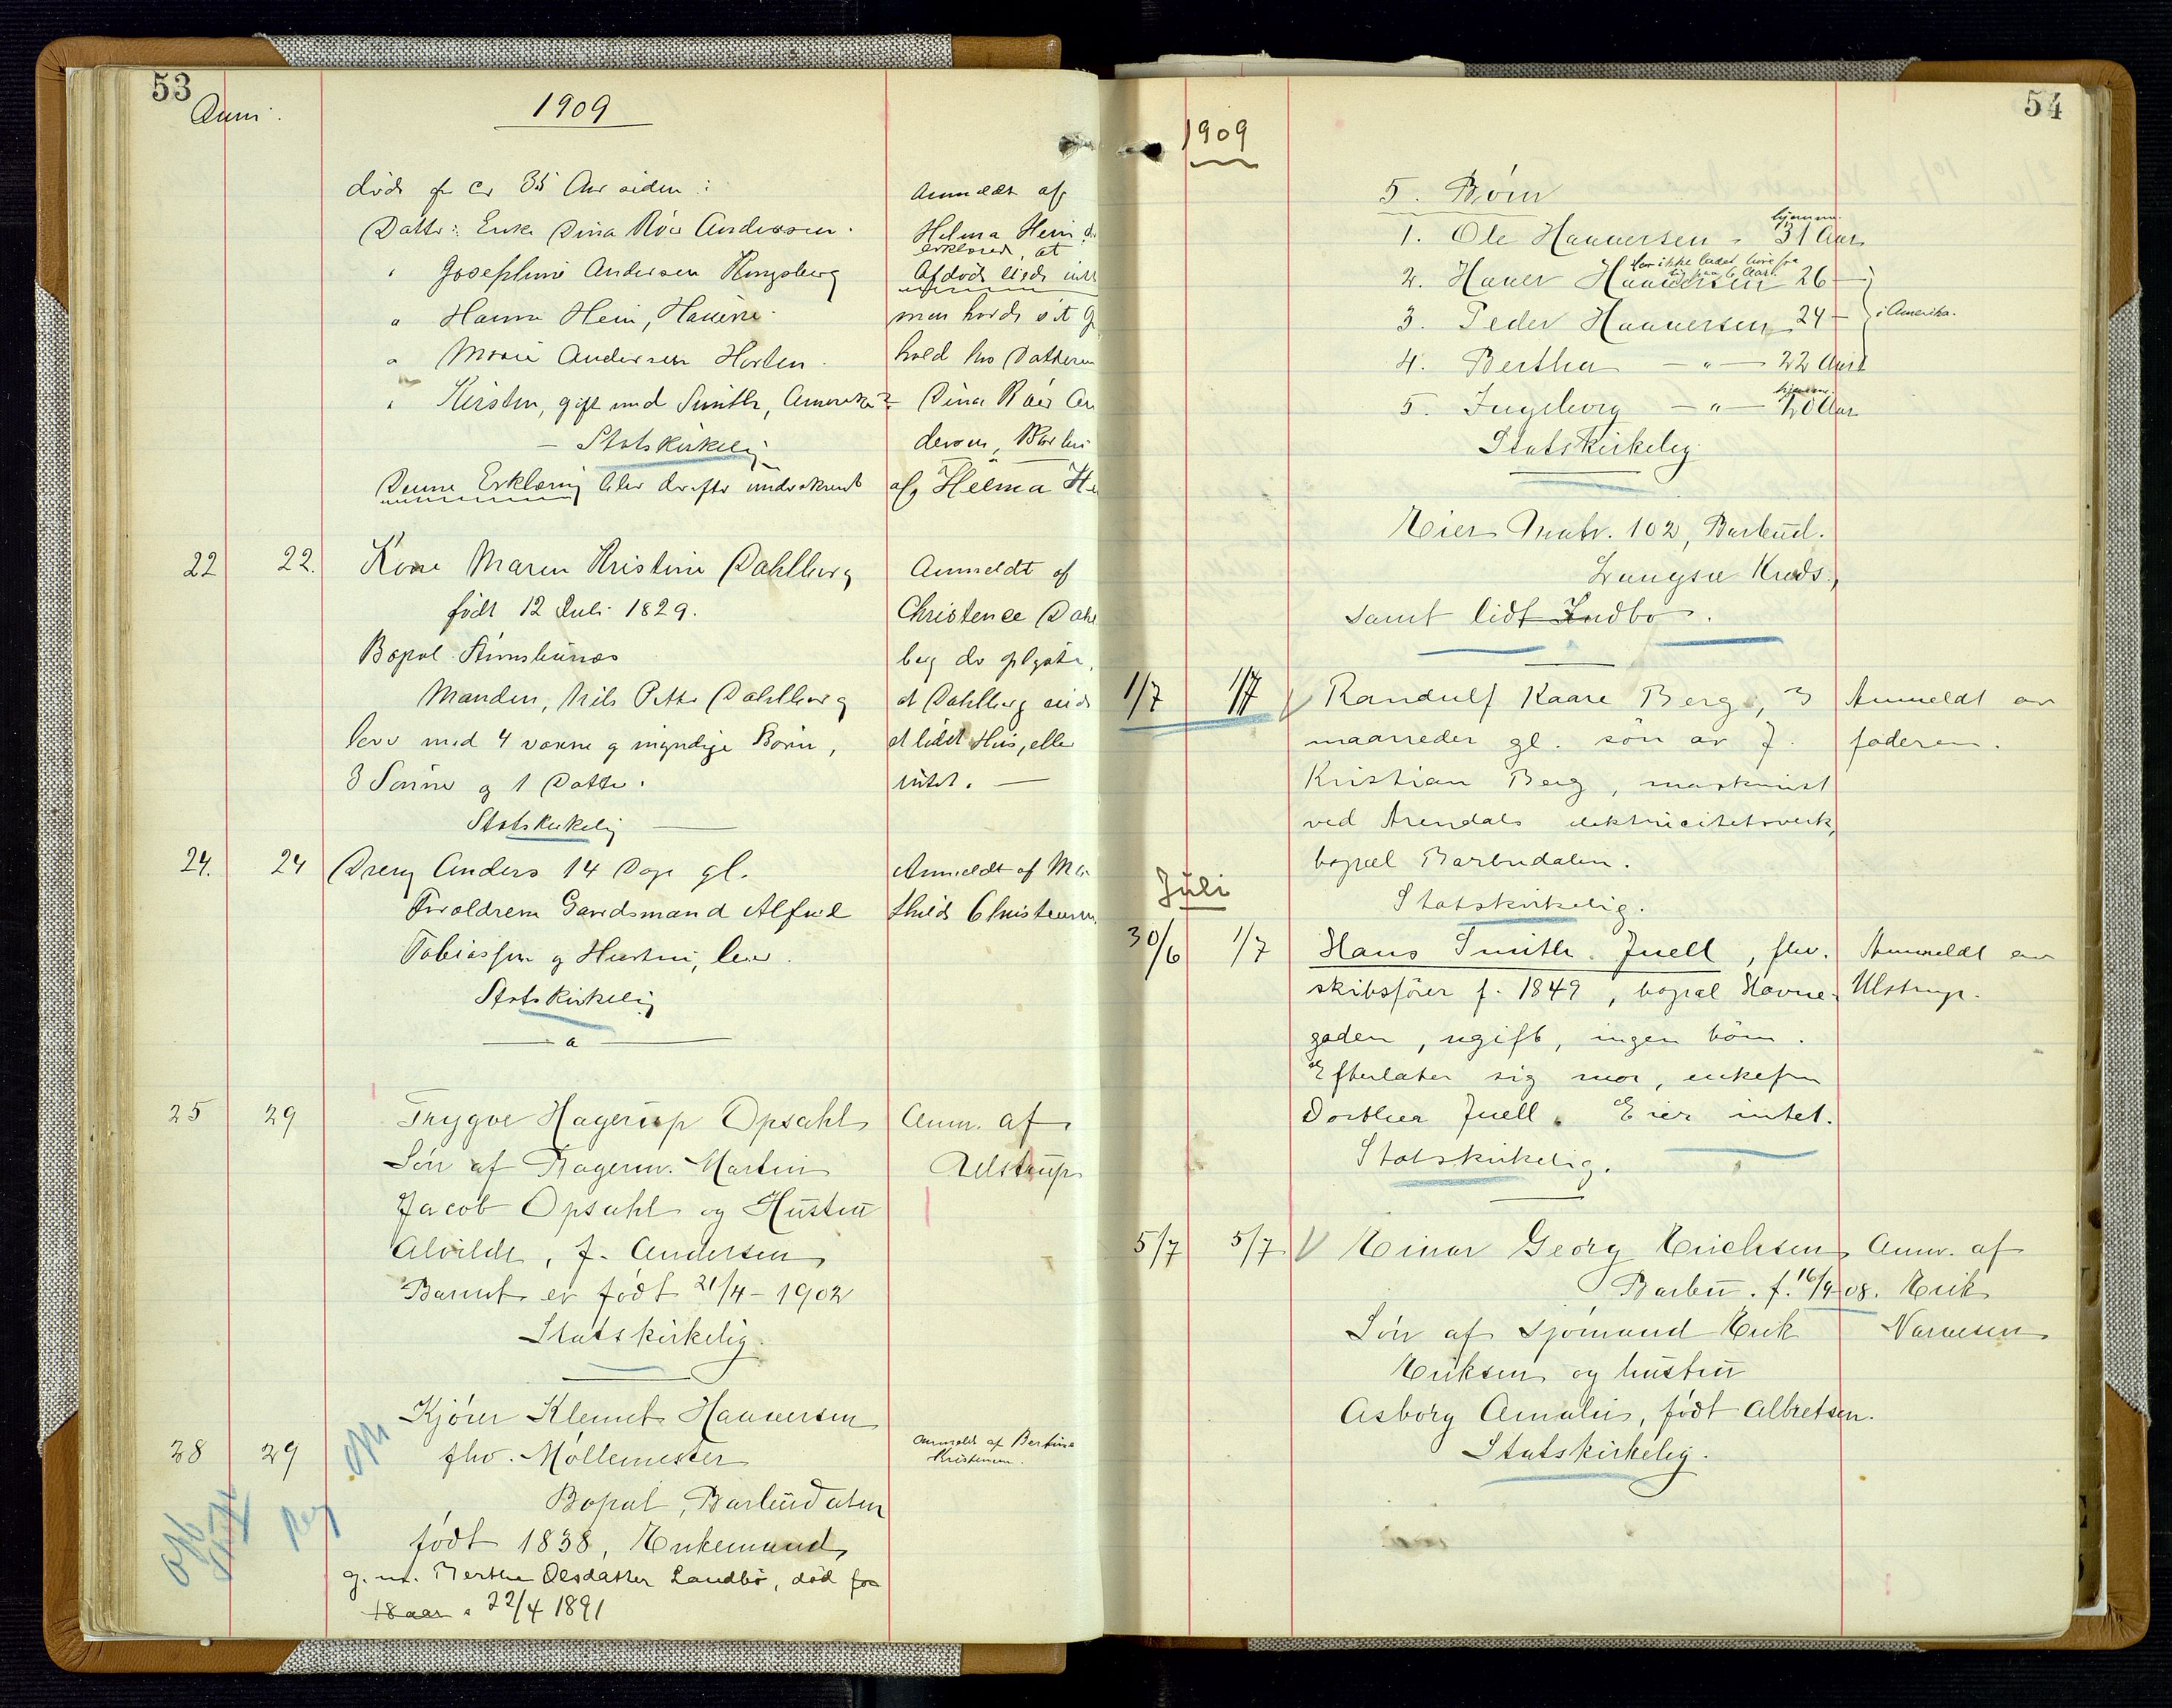 53
Juni.
1909
døds for ca 35 Aar siden:
Datter: Enke Dina Röer Anderssen.
" Josephine Andersen Kongsberg
" Hanna Hein, Havene.
" Marie Andersen Horten.
" Kirsten, gift med Smith, Amerika?
– Statskirkelig
Denne Erklæring blev derefter underskrevet
Anmeldt af
Helma Hein der
erklæred, at
Afdøde eiede intet
men havde sit Op
hold hos Datteren
Dina Röer An
dersen, Barbu
af Helma He
22 22. Kone Maren Kristine Dahlberg
født 12 Juli 1829.
Bopæl Stinsbunes
Manden, Nils Petter Dahlberg
lever med 4 voxne og myndige Børn,
3 Sønner og 1 Datter.
Statskirkelig
Anmeldt af
Christence Dahl
berg der oplyste,
at Dahlberg eied
et lidet Hus, eller
intet. —
24. 24 Dreng Anders 14 Dage gl.
Foreldrene Gaardsmand Alfred
Tobiassen og Hustru, lever.
Statskirkelig
Anmeldt af Ma
thilde Christensen
25 29 Trygve Hagerup Opsahl
Søn af Bagerm. Martin
Jacob Opsahl og Hustru
Alvilde, f. Andersen
Barnet er født 21/4 – 1902
Statskirkelig.
Anm. af
Ulstrup
28 29 Kjører Klemet Haaversen
fhv. Møllemester
Bopæl, Barbudalen
født 1838, Enkemand,
g. m. Berthe Olesdatter Landbö, död for
18 aar. 22/4 1891
Anmeldt af Bertine
Kristensen.
54
1909
5. Børn
1. Ole Haaversen - 31 Aar
hjemme
2. Haaver Haaversen 26 –
har ikke ladet høre fra
sig paa 6 Aar.
3. Peder Haaversen 24 –
i Amerika.
4. Bertha – " – 22 Aar
5. Ingeborg – " – 20 Aar
hjemme
Statskirkelig
Eier Matr. 102, Barbud.
Langsæ Kreds,
samt lidt Indbo.
1/7 1/7 Randulf Kaare Berg, 3
maaneder gl. sön av J.
Kristian Berg, maskinist
ved Arendals elektricitetsverk,
bopæl Barbudalen.
Statskirkelig.
Anmeldt av
faderen.
Juli
30/6 1/7 Hans Smith Juell, fhv.
skibsförer f. 1849, bopæl Havne-
gaden, ugift, ingen börn.
Efterlater sig mor, enkefru
Dorthea Juell. Eier intet.
Statskirkelig.
Anmeldt av
Ulstrup.
5/7 5/7 Einar Georg Erichsen
Barbu. f. 16/9 08.
Søn af Sjømand Erik
Eriksen og hustru
Asborg Amalie, født Albretsen.
Statskirkelig.
Anm. af
Erik
Narvesen